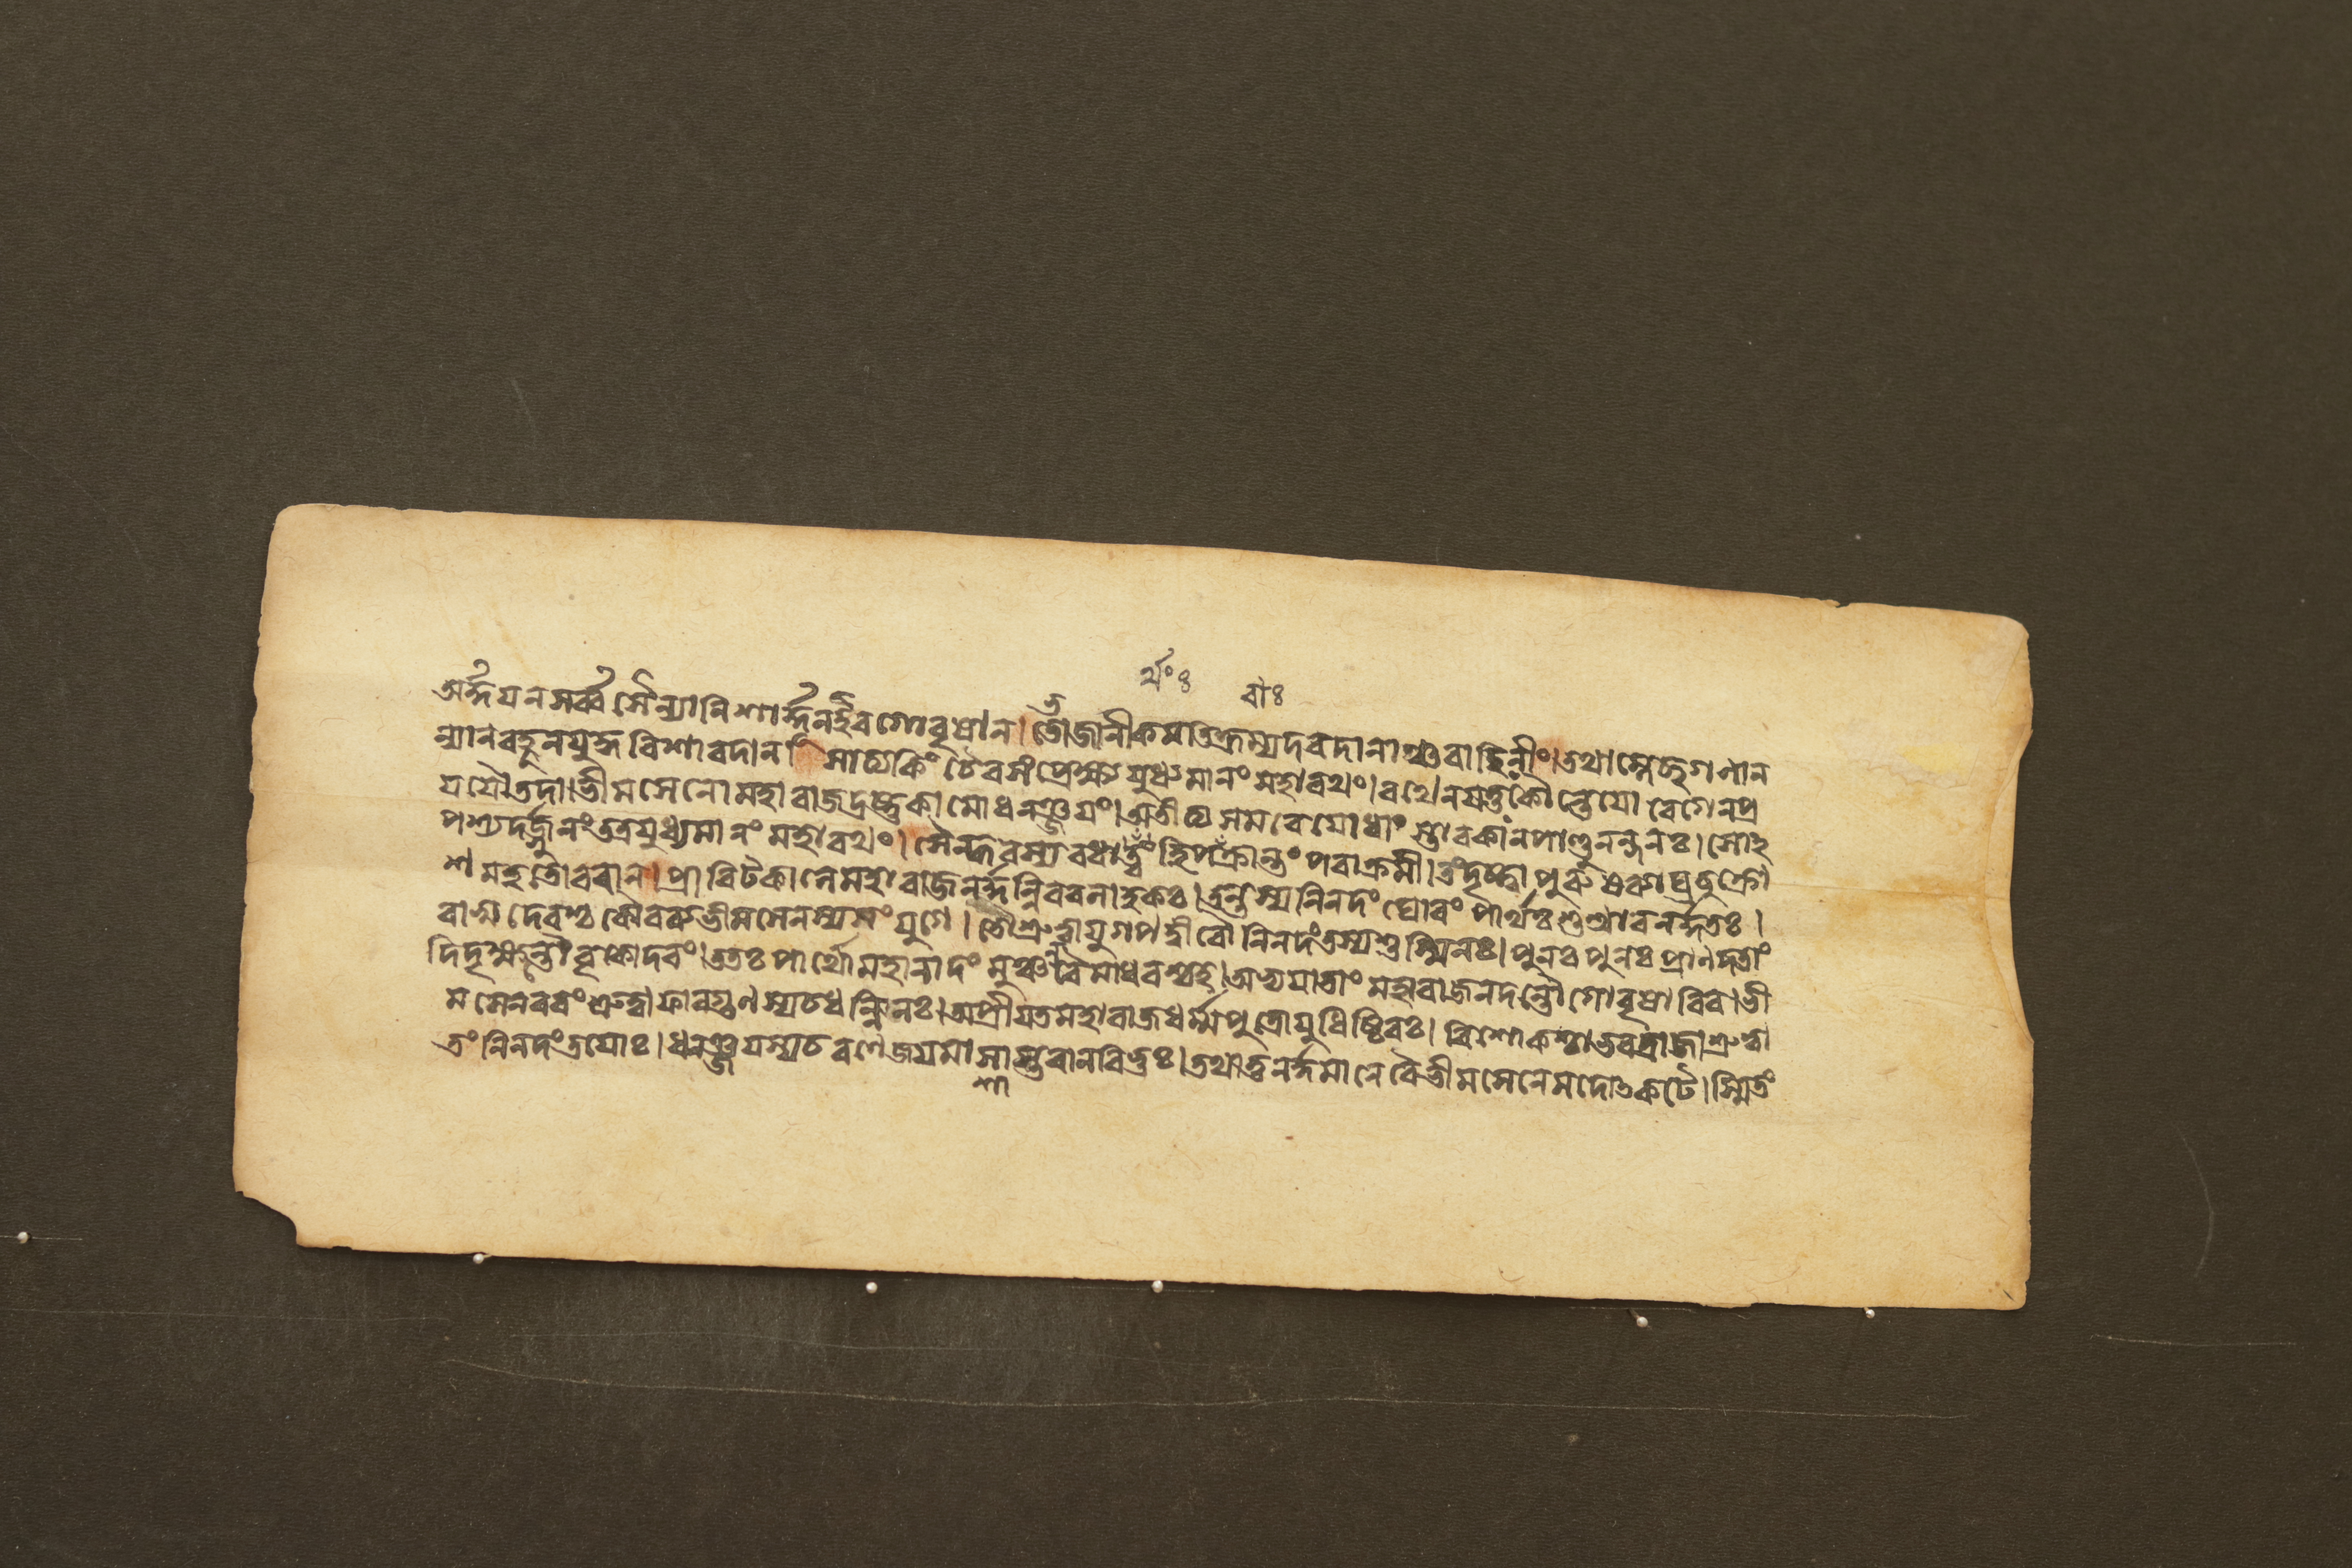 র্থঃ৪ বাঃ
অর্দ্দয়ন সর্ব্ব সৈন্যানি শার্দ্দূল ইব গোবৃষান। ভোজানীকমতিক্রম্য দরদানাঞ্চ বাহিনীং। তথা ম্লেচ্ছগনান
ন্যান বহূন যুদ্ধ বিশারদান। সাত্যকিং চৈব সংপ্রেক্ষ্য যুধ্যমানং মহারথং। রথেন যত্তঃ কৌন্তেয়ো বেগেন প্র
যযৌ তদা। ভীমসেনো মহারাজ দ্রষ্টুকামো ধনঞ্জয়ং। অতীত্য সমরে যোধাং স্তাবকান পাণ্ডুনন্দনঃ। সোহ
পশ্যদর্জ্জুনং তত্র যুধ্যমানং মহারথং। সৈন্ধবস্য বধার্থং হি পরাক্রান্তং পরাক্রমী। তং দৃষ্ট্বা পুরুষব্যাঘ্রশ্চুক্রো
শ মহতো রবান। প্রাবৃট্কালে মহারাজ নর্দ্দন্নিব বলাহকঃ। তন্তস্য নিনদং ঘোরং পার্থঃ শুশ্রাব নর্দ্দতঃ।
বাসুদেবশ্চ কৌরব্য ভীমসেনস্য সংযুগে। তৌ শ্রুত্বা যুগপদ্বীরৌ নিনদং তস্য শুষ্মিনঃ। পুনঃ পুনঃ প্রাণদতাং
দিদৃক্ষন্তৌ বৃকোদরং। ততঃ পার্থো মহানাদং মুঞ্চন্বৈ মাধবশ্চহ। অভ্যযাতাং মহারাজ নদন্তৌ গোবৃষাবিব। ভী
মসেনরবং শ্রুত্বা ফাল্গুণস্য চ ধন্বিনঃ। অপ্রীয়ত মহারাজ ধর্ম্মপুত্রো যুধিষ্ঠিরঃ। বিশোকশ্চাভবদ্রাজা শ্রুত্বা
তং নিনদং তয়োঃ। ধনঞ্জয়স্য চ রণে জয়মাশাস্তবান বিভুঃ। তথা তু নর্দ্দমানে বৈ ভীমসেনে মদোৎকটে। স্মিতং
শা